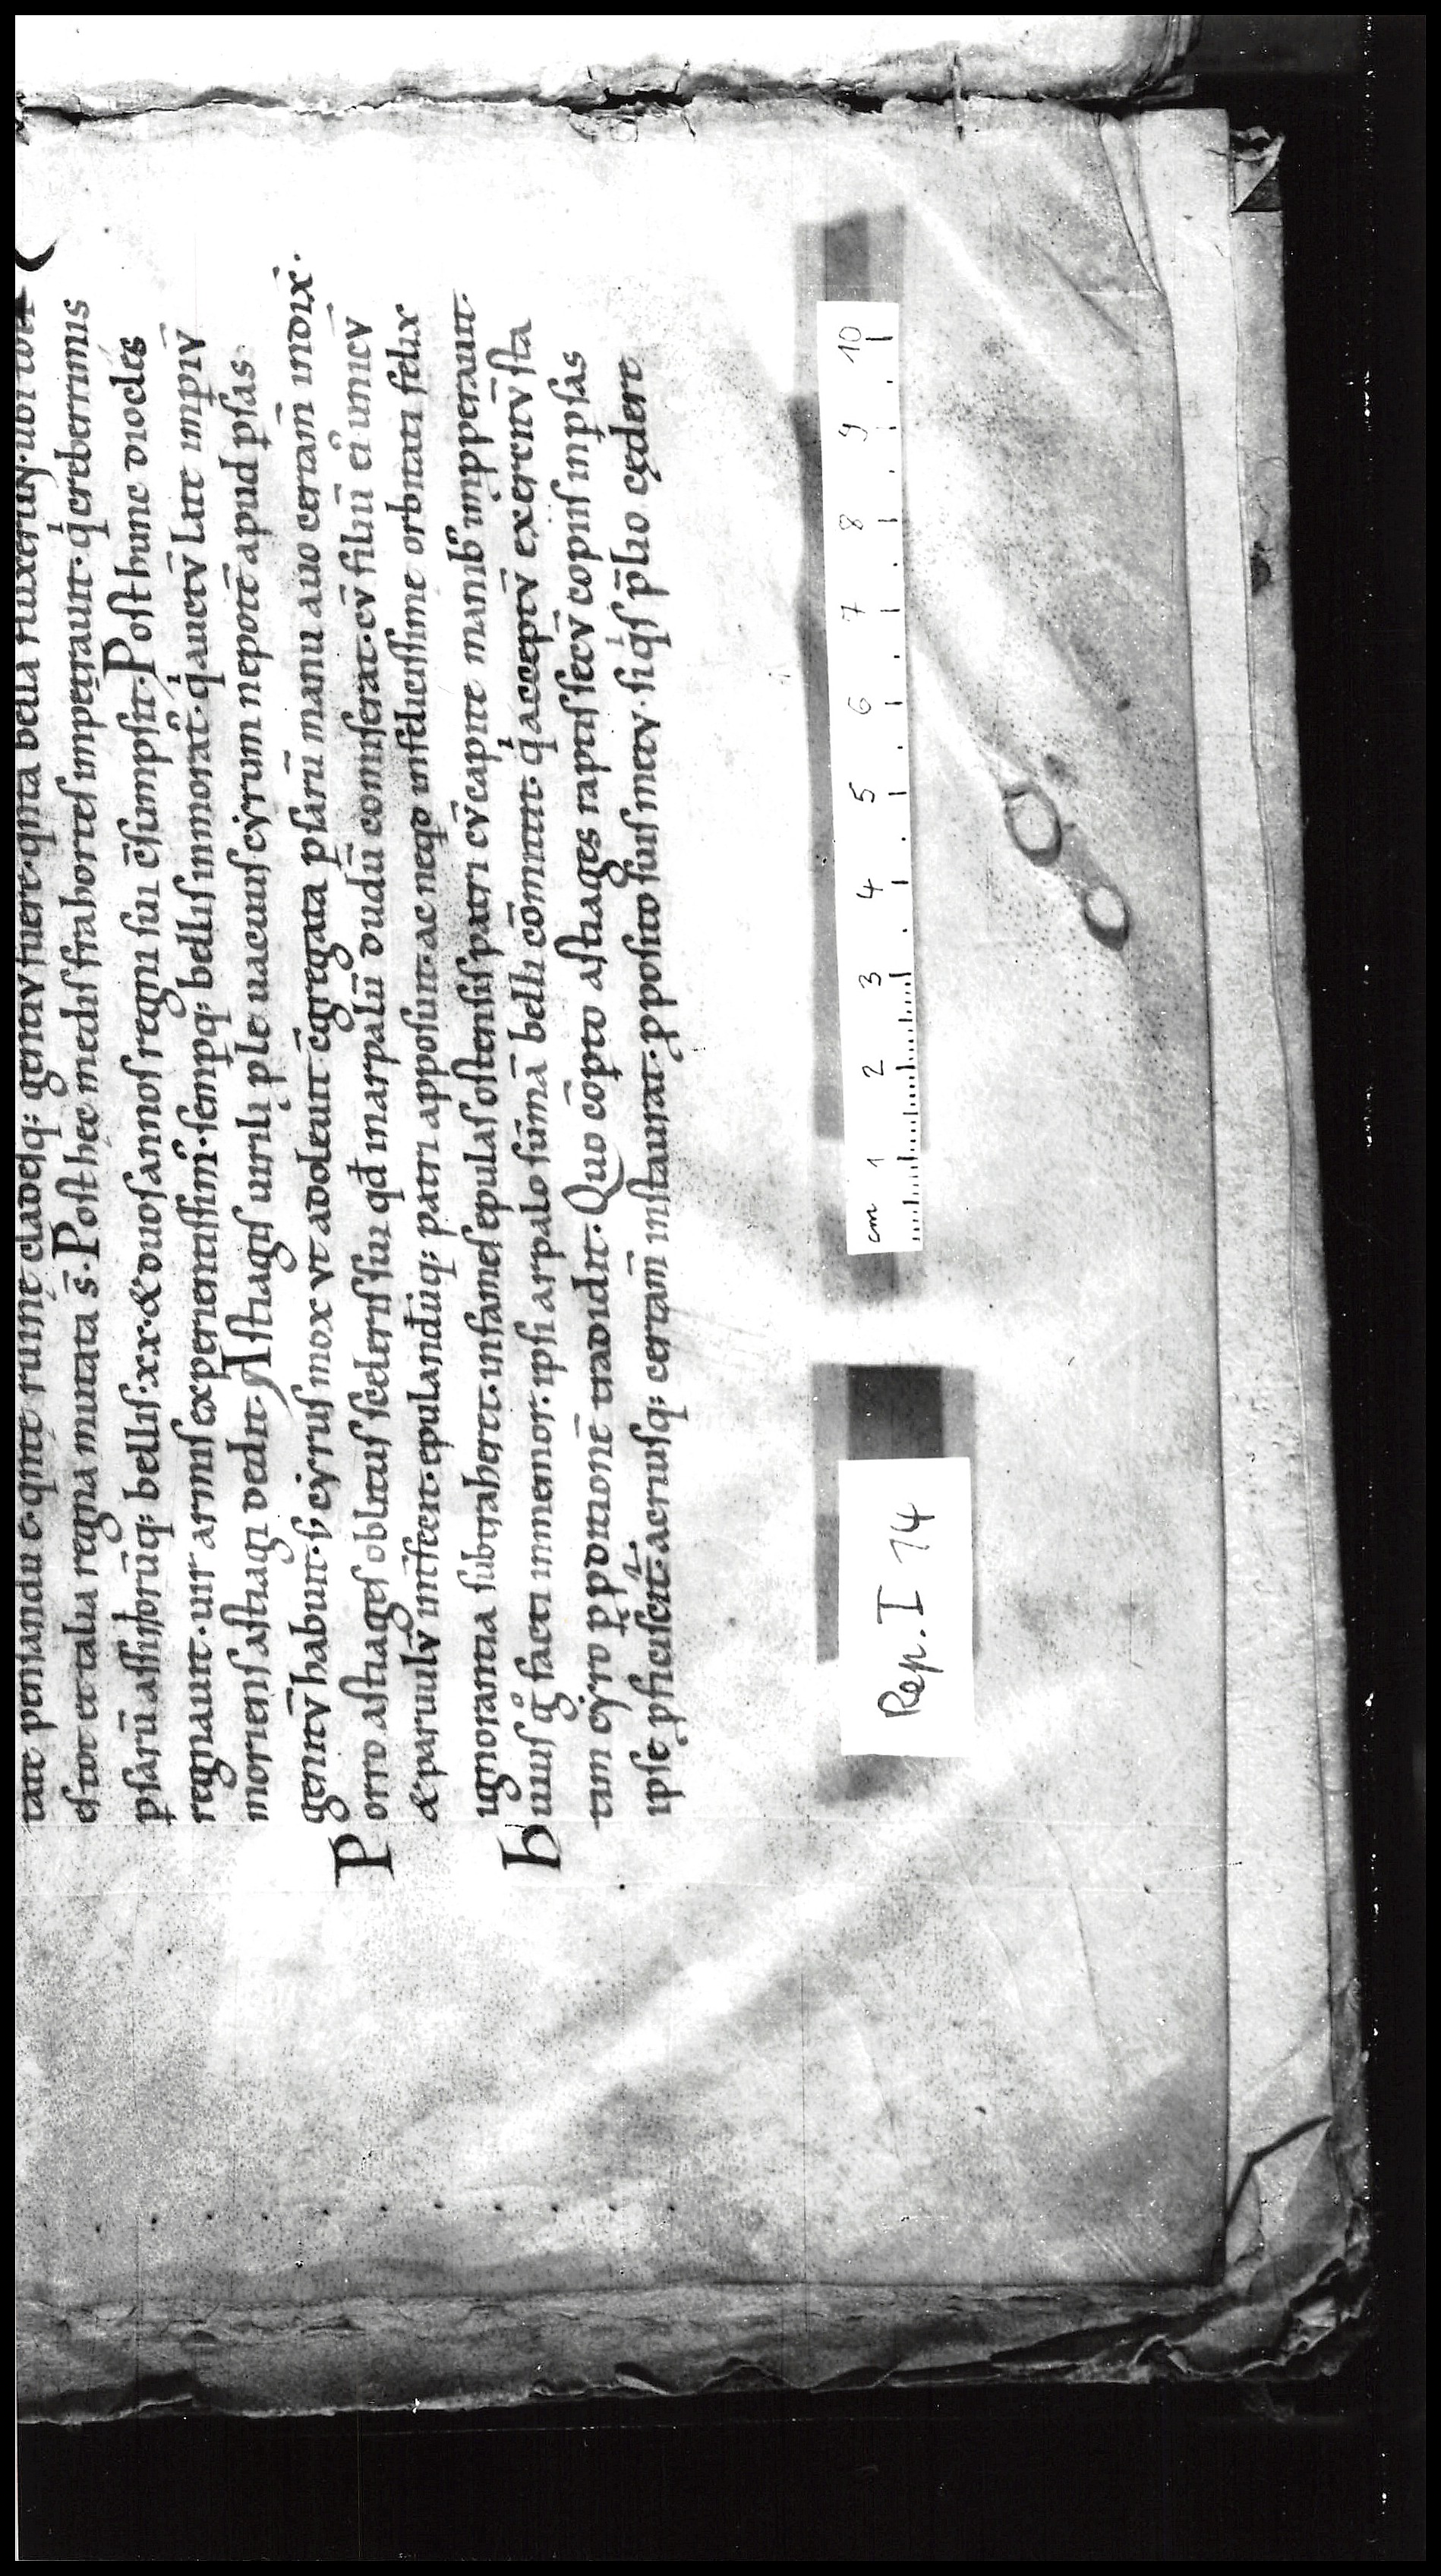 tate pensandu e· qntę ruinę cladesq: gentiv fuere· qnta bella fluxerun·
esror et talia regna mutata s̄· Post hęc medis frahortes imperauit· q̍ creberrimis
psarū assiriorūq: bellis· xx· & duos annos regni sui c̄sumpsit· Post hunc diocles
regnauit· uir armis experientissim᷒· semꝑq: bellis inmorat᷒· q̍ auctv̄ late impiv̄
moriens astiagi dedit· Astiages uirili ple uacuus cẏrum nepotē apud psas
genitv̄ habuit· s; cẏrus mox vt adoleuit c̄gregata psarū manu auo certam̄ indix̄·
Porro astiages oblitus sceleris sui qd̄ in arpalū dudū comiserat· cv̄ filiū ei᷒ unicv̄
& paruulv̄ int̄fecit· epulandūq: patri apposuit· ac neqo infelicissime orbitati felix
ignorantia subtraheret· infames epulas ostensis patri cv̄ capite manib᷒ impperauit·
huius g̊ facti inmemor· ipsi arpalo sum̄ā belli cōmittit· q̍ acceptv̄ exercitv̄ sta
tim cẏro ꝑ pditionē tradidit· Quo cōpto astiages raptis secv̄ copiis in psas
ipse ꝑficiscit᷑· acriusq: certam̄ instaurat· ꝓposito suis metv· siq̍s plio cędere
cm 1 2 3 4 5 6 7 8 9 10
Rep. I 74